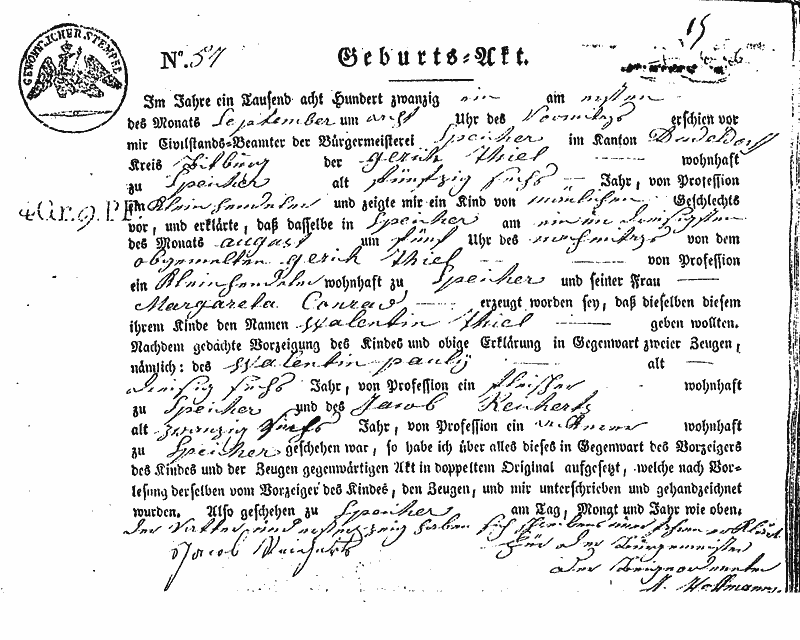 GEWÖHNLICHER STEMPEL
15
Nº. 57 Geburts-Akt.
4 Gr. 9. Pf.
Im Jahre ein Tausend acht Hundert zwanzig ein am ersten
des Monats September um acht Uhr des Vormitags erschien vor
mir Civilstands-Beamter der Bürgermeisterei Speicher im Kanton Dudeldorf
Kreis Bitburg der gerich Thiel wohnhaft
zu Speicher alt fünfzig sechs Jahr, von Profession
ein Kleinhendeler und zeigte mir ein Kind von mänlichen Geschlechts
vor, und erklärte, daß dasselbe in Speicher am ein un dreisigsten
des Monats august um fünf Uhr des nachmitags von dem
obgemelten gerich Thiel von Profession
ein Kleinhendeler wohnhaft zu Speicher und seiner Frau
Margareta Conrad erzeugt worden sey, daß dieselben diesem
ihrem Kinde den Namen Walentin Thiel geben wollten.
Nachdem gedachte Vorzeigung des Kindes und obige Erklärung in Gegenwart zweier Zeugen,
nämlich: des Walentin pauly alt
dreisig sechs Jahr, von Profession ein wohnhaft
zu Speicher und des Jacob Reichertz
alt zwanzig sechs Jahr, von Profession ein wohnhaft
zu Speicher geschehen war, so habe ich über alles dieses in Gegenwart des Vorzeigers
des Kindes und der Zeugen gegenwärtigen Akt in doppeltem Original aufgesetzt, welche nach Vor-
lesung derselben vom Vorzeiger des Kindes, den Zeugen, und mir unterschrieben und gehandzeichnet
wurden. Also geschehen zu Speicher am Tag, Monat und Jahr wie oben.
der Vatter und erster zeug haben sich schreibens unerfahren erklärt
Jacob Reichertz für der Bürgemeister
der Beigeordnete
Hoffmann